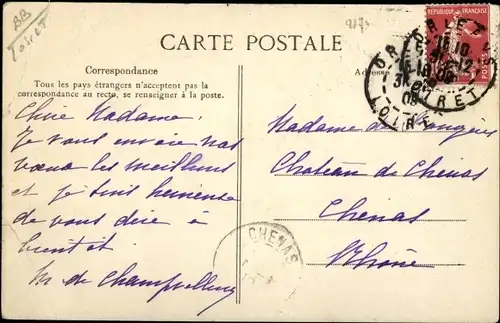 BB
Loiret
217.
CARTE POSTALE
RÉPUBLIQUE FRANÇAISE
Correspondance
Adresse
Tous les pays étrangers n'acceptent pas la
correspondance au recto, se renseigner à la poste.
LOIRET
Chère Madame,
Je vous envoie nos
vœux les meilleurs
et je suis heureuse
de vous dire à
bientôt.
M de
Madame de
Chateau de Chénas
Chénas
Rhône
CHENAS